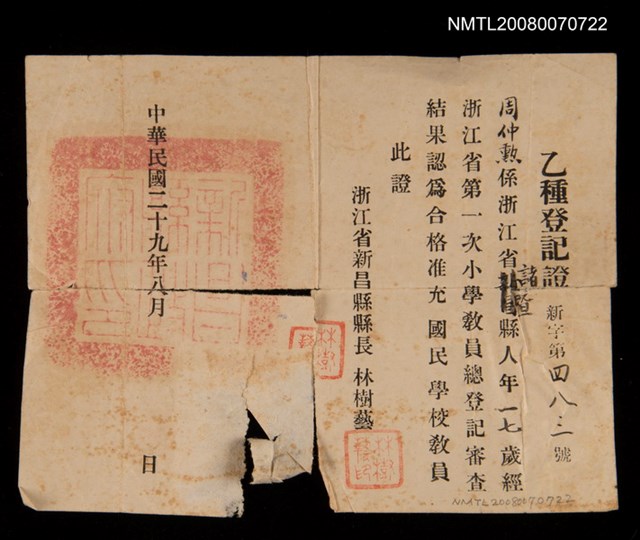 NMTL20080070722
乙種登記證 新字第四八三號
周仲勲係浙江省諸暨縣人年一七歲經
浙江省第一次小學教員總登記審查
結果認爲合格准充國民學校教員
此證
浙江省新昌縣縣長 林樹藝
中華民國二十九年八月 日
NMTL20080070722